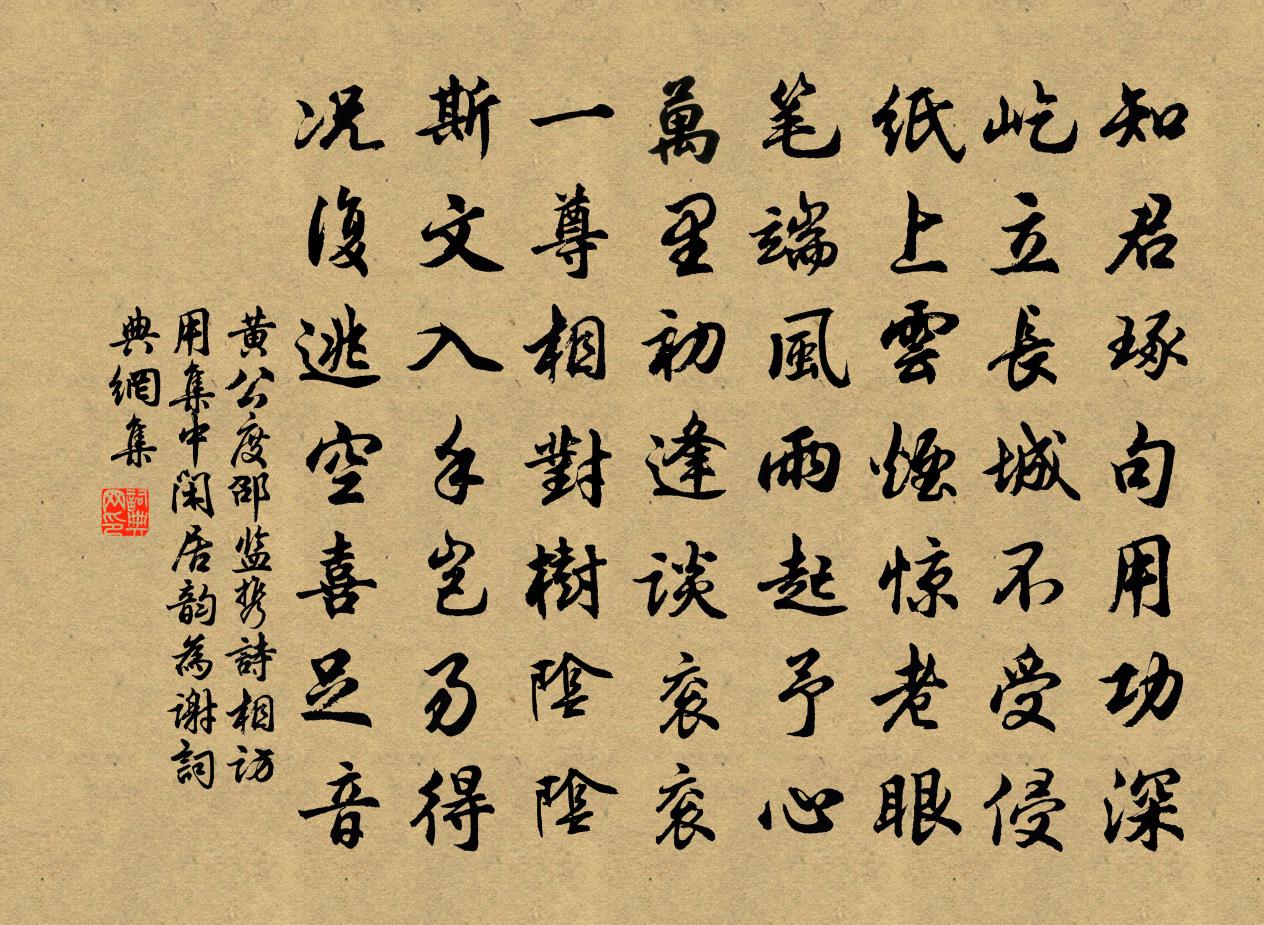 知君琢句用功深
屹立長城不受侵
紙上雲煙惊老眼
笔端風雨起予心
萬里初逢談衮衮
一尊相對樹陰陰
斯文入手岂易得
况復逃空喜足音
黄公度邵监携詩相访
用集中閑居韵為谢詞
典網集
詞典
网印